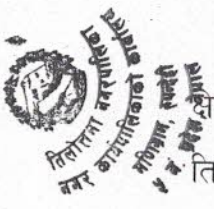 तिलोत्तमा नगरपालिका
नगर कार्यपालिकाको कार्यालय
मणिग्राम, रुपन्देही
क्षे
ति